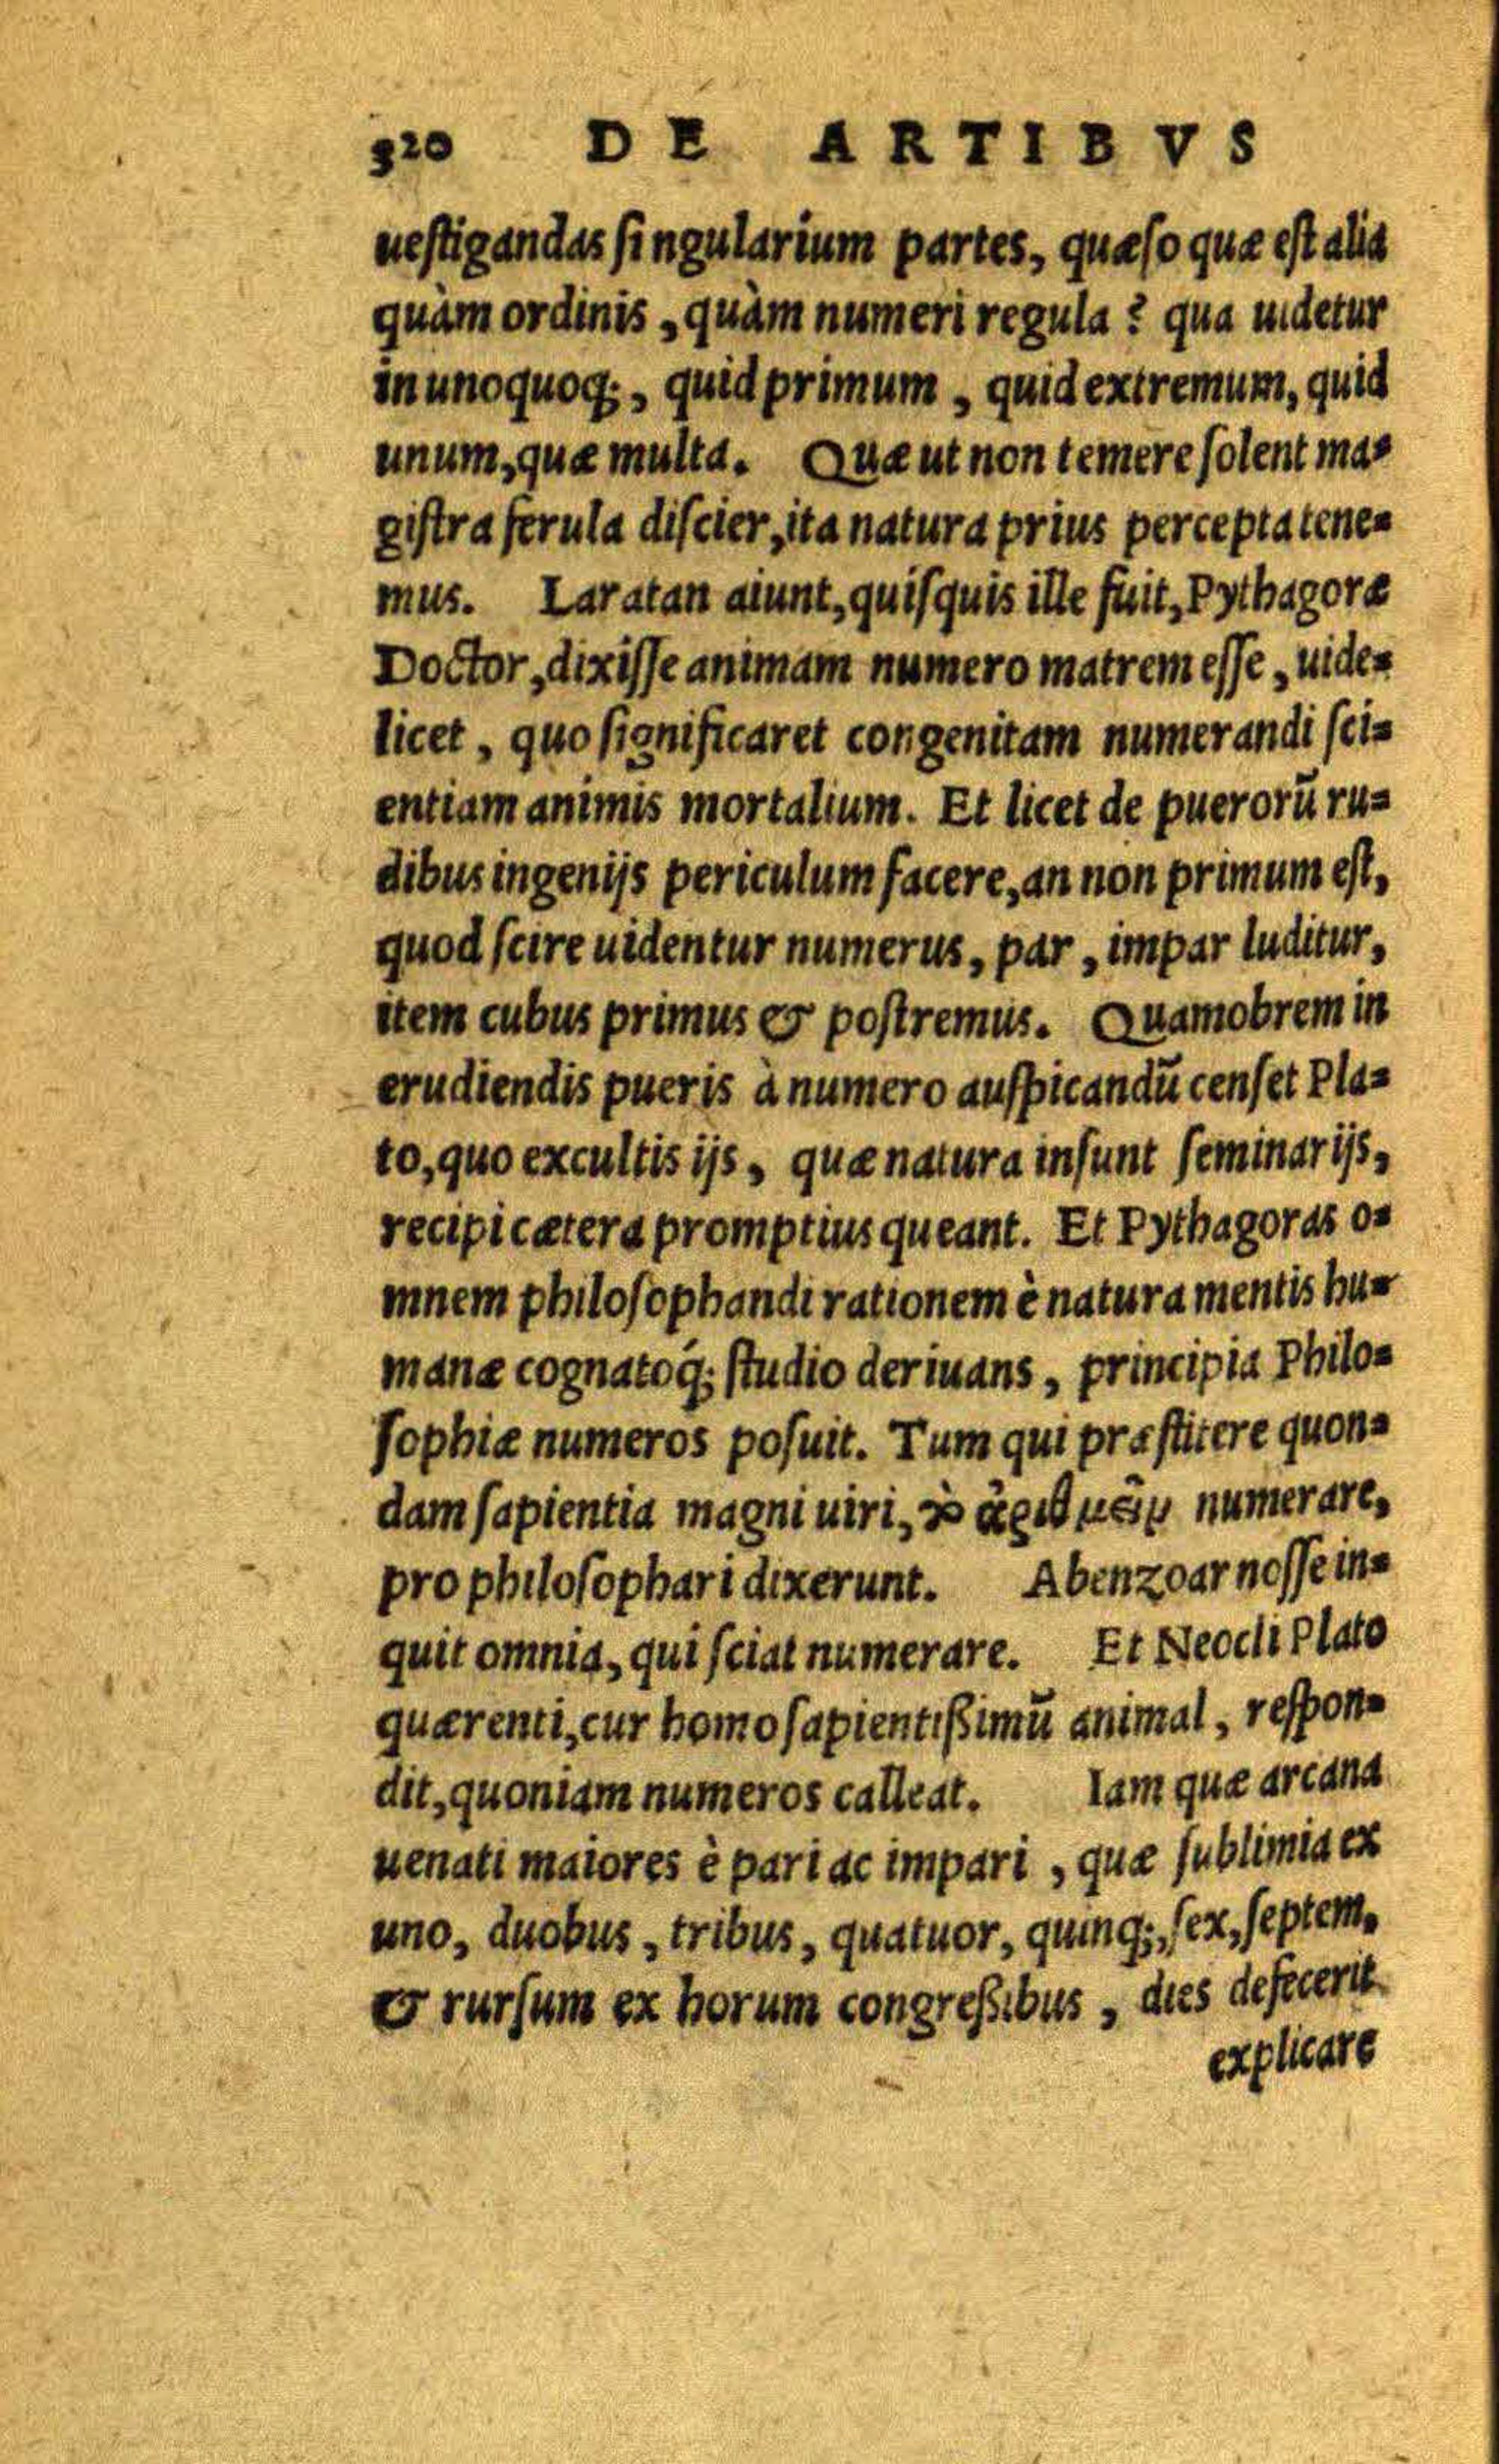 320 DE ARTIBVS
ueſtigandas ſingularium partes, quæſo quæ eſt alia
quàm ordinis, quàm numeri regula? qua uidetur
in unoquoq;, quid primum, quid extremum, quid
unum, quæ multa. Quæ ut non temere ſolent ma-
giſtra ferula diſcier, ita natura prius percepta tene-
mus. Laratan aiunt, quiſquis ille fuit, Pythagoræ
Doctor, dixiſſe animam numero matrem eſſe, uide-
licet, quo ſignificaret congenitam numerandi ſci-
entiam animis mortalium. Et licet de puerorū ru-
dibus ingenijs periculum facere, an non primum eſt,
quod ſcire uidentur numerus, par, impar luditur,
item cubus primus & poſtremus. Quamobrem in
erudiendis pueris à numero auſpicandū cenſet Pla-
to, quo excultis ijs, quæ natura inſunt ſeminarijs,
recipi cætera promptius queant. Et Pythagoras o-
mnem philoſophandi rationem è natura mentis hu-
manæ cognatoq́; ſtudio deriuans, principia Philo-
ſophiæ numeros poſuit. Tum qui præſtitere quon-
dam ſapientia magni uiri, τὸ ἀριθμεῖν numerare,
pro philoſophari dixerunt. Abenzoar noſſe in-
quit omnia, qui ſciat numerare. Et Neocli Plato
quærenti, cur homo ſapientißimū animal, reſpon-
dit, quoniam numeros calleat. Iam quæ arcana
uenati maiores è pari ac impari, quæ ſublimia ex
uno, duobus, tribus, quatuor, quinq;, ſex, ſeptem,
& rurſum ex horum congreßibus, dies defecerit
explicare